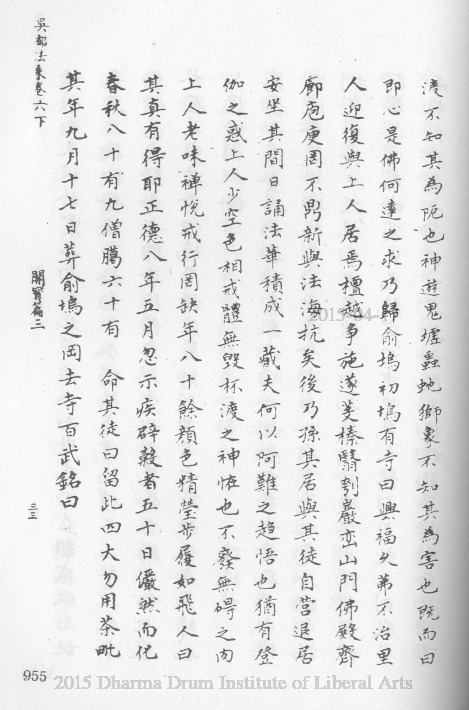 渡不知其為阨也神遊鬼墟蟲虵獅象不知其為害也既而曰
即心是佛何達之求乃歸俞塢初塢有寺曰興福久弟不治里
人迎復與上人居焉檀越爭施遂芟榛翳刳巖巒山門佛殿齊
廊庖庾罔不鼎新與法海抗矣後乃孫其居與其徒自營退居
安坐其間日誦法華積成一藏夫何以阿難之趋悟也猶有登
伽之惑上人少空色相戒體無毀杯渡之神恠也不發無碍之肉
上人老味禅悅戒行罔缺年八十餘顏色精瑩步履如飛人曰
其真有得耶正德八年五月忽示疾辟穀者五十日儼然而化
春秋八十有九僧臘六十有 命其徒曰留此四大勿用茶毗
其年九月十七日葬俞塢之岡去寺百武銘曰
吳都法乘卷六下
開寶篇三
三三
955
2015 Dharma Drum Institute of Liberal Arts